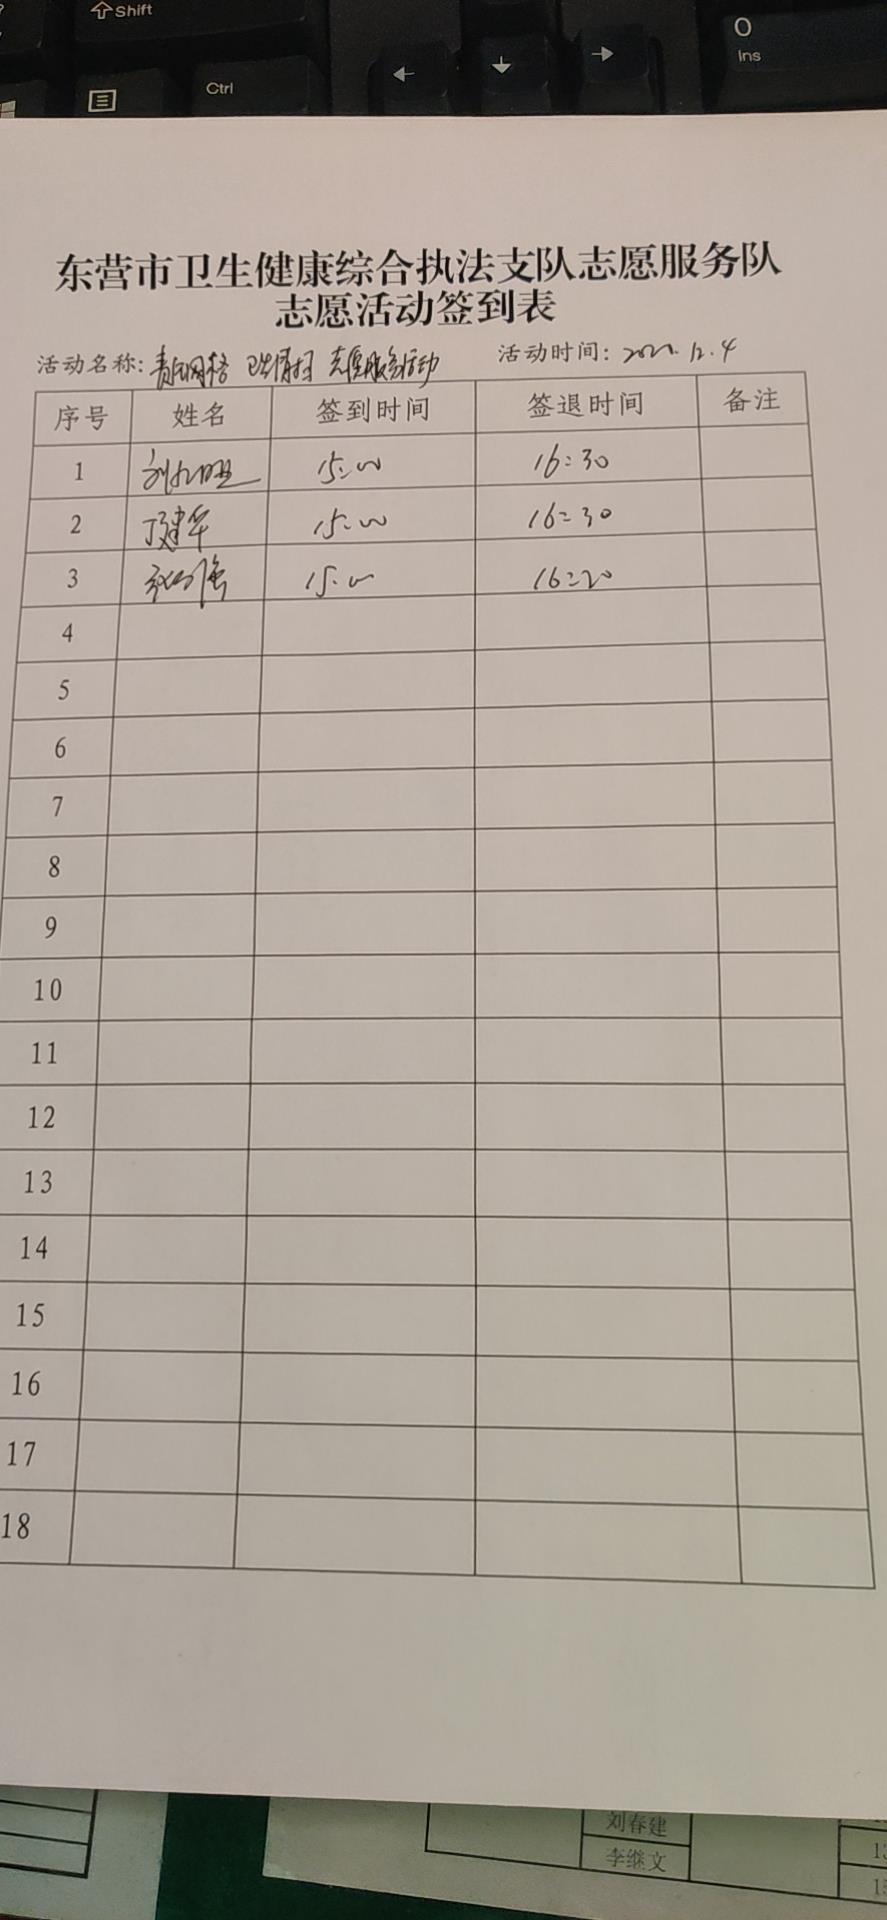 Shift
Ctrl
0
Ins
东营市卫生健康综合执法支队志愿服务队
志愿活动签到表
活动名称: 卫生清扫 志愿服务活动 活动时间: 12.4
序号 姓名 签到时间 签退时间 备注
1 15:00 16:30
2 丁建军 15:00 16:30
3 15:00 16:20
4
5
6
7
8
9
10
11
12
13
14
15
16
17
18
刘春建
李继文